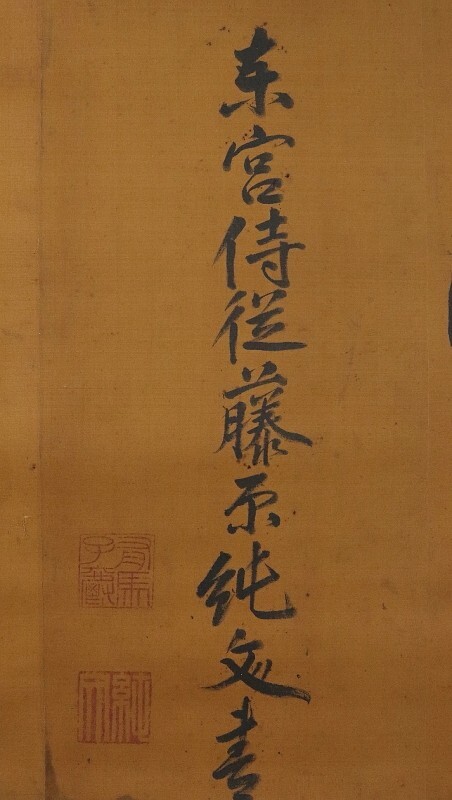 東宮侍従藤原純文書